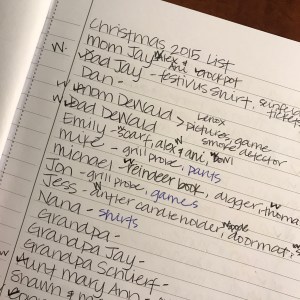 Christmas 2015 List
W- Mom Jay - Alex & Ani, crockpot
Dad Jay - festivus shirt, seinfeld
tickets
Dan -
W Mom DeWald > Lenox
W Dad DeWald pictures, game
Emily - W scarf, alex & ani, W bowl smoke detector
Mike - grill probe, pants
Michael - W reindeer book, digger, W thomas
Jon - grill probe, games
Jess - W glitter candle holder, doormat, W
Nana - shirts
Grandpa -
Grandpa Jay -
Grandpa Schlierf -
W Aunt Mary Ann -
Shawn &